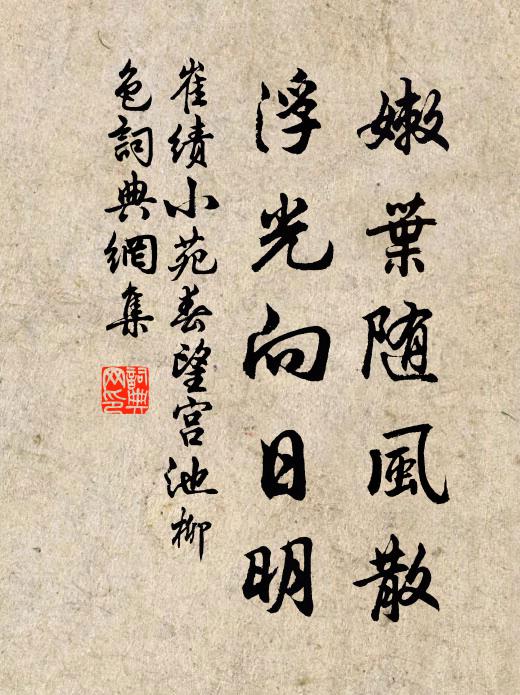 嫩葉随風散
浮光向日明
崔績小苑春望宮池柳
色詞典網集
詞典
网印